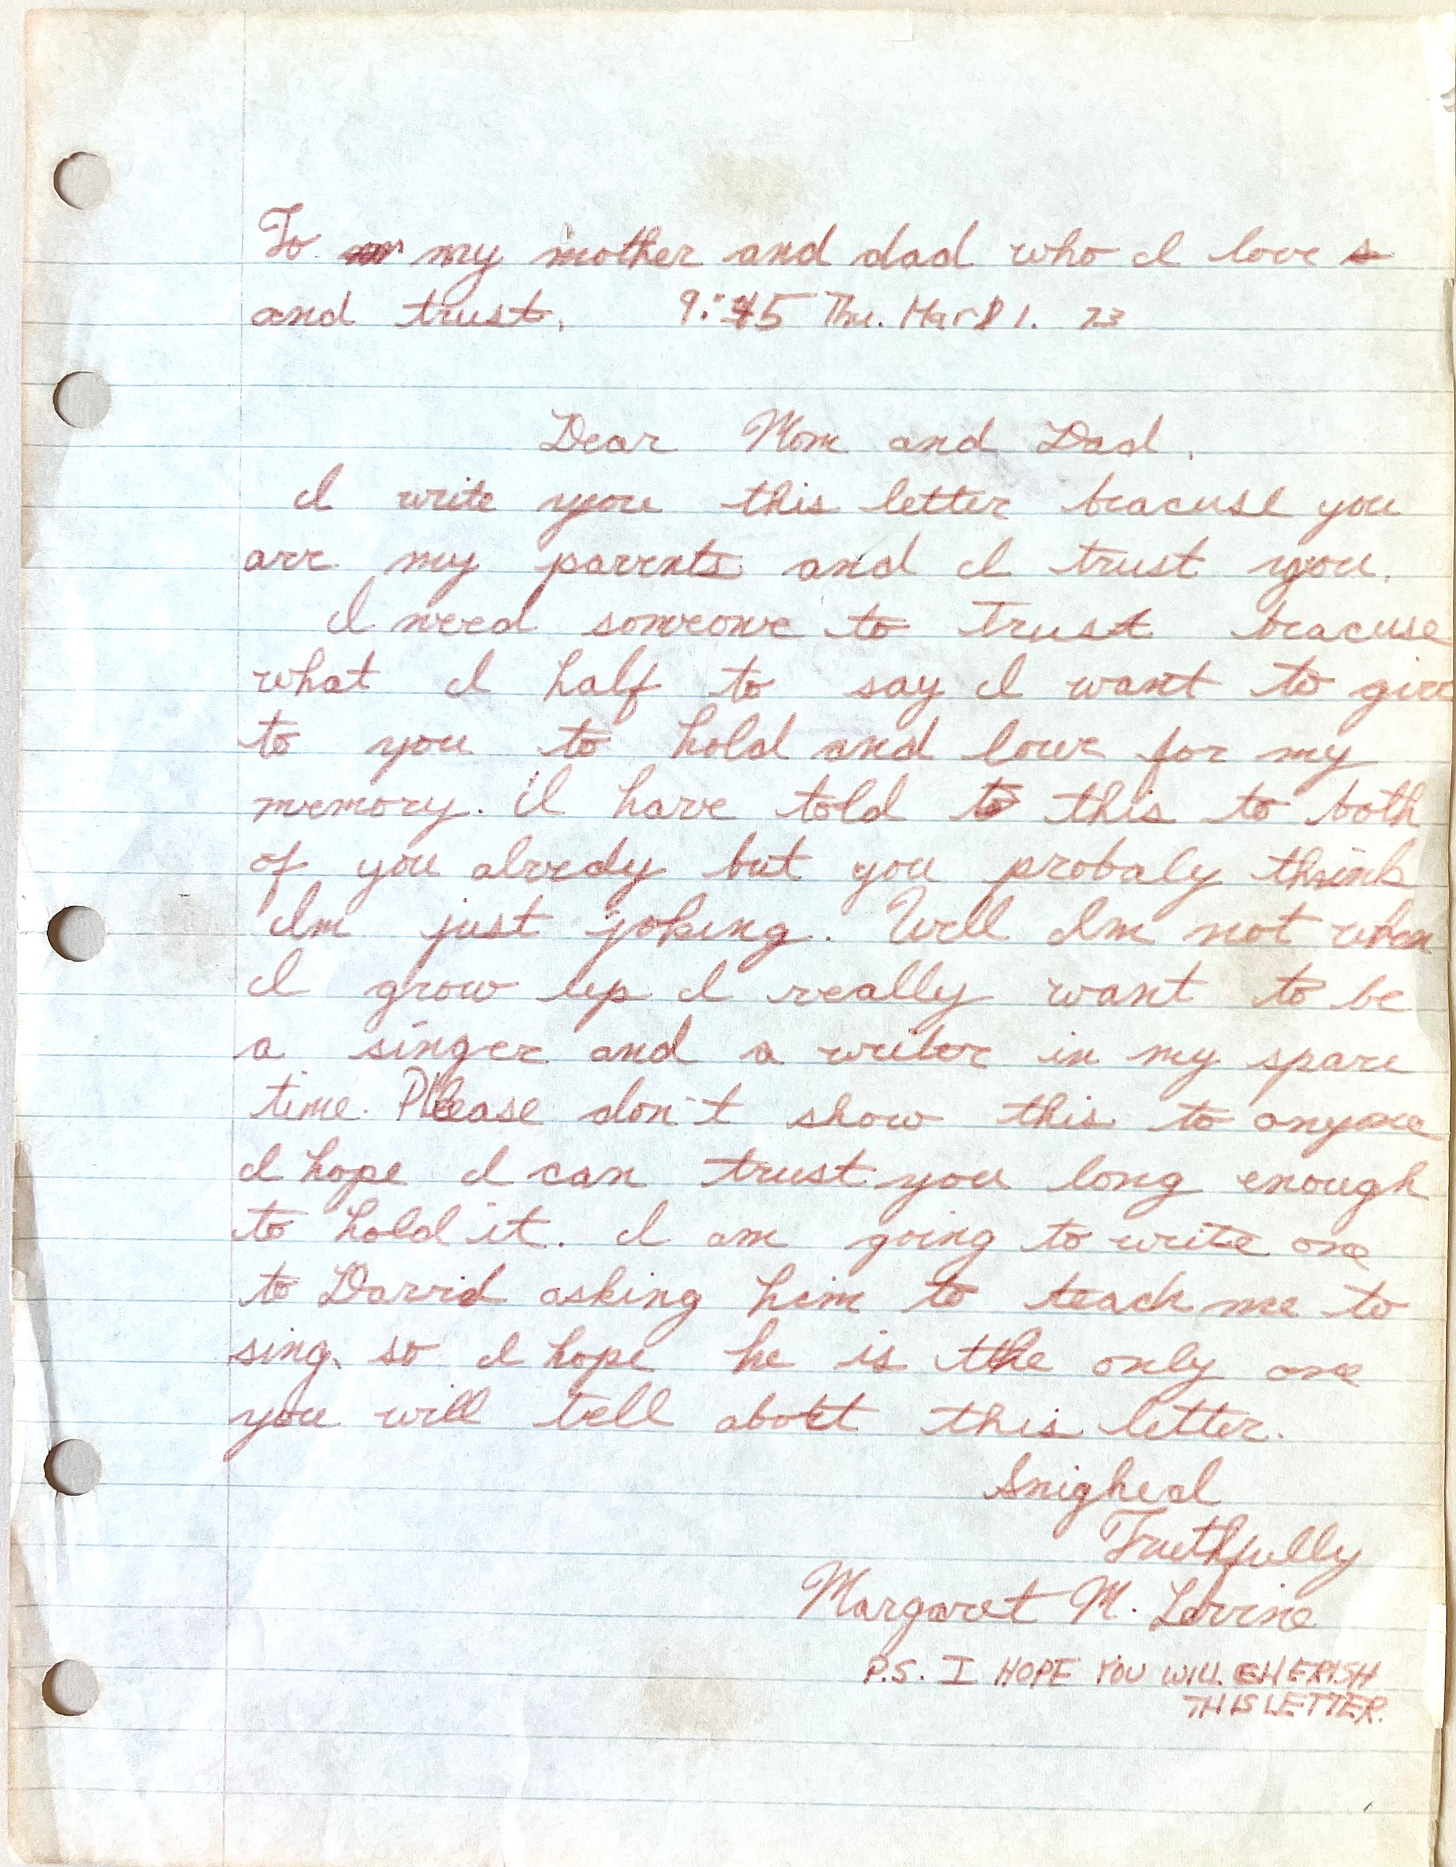 To my mother and dad who I love
and trust. 9:45 Thu. Mar 1. 73
Dear Mom and Dad,
I write you this letter beacuse you
are my parents and I trust you.
I need someone to trust beacuse
what I half to say I want to give
to you to hold and love for my
memory. I have told this to both
of you alredy but you probaly think
Im just joking. Well Im not when
I grow up I really want to be
a singer and a writer in my spare
time. Please don't show this to anyone
I hope I can trust you long enough
to hold it. I am going to write one
to David asking him to teach me to
sing, so I hope he is the only one
you will tell about this letter.
Snighed
Faithfully
Margaret M. Levine
P.S. I HOPE YOU WILL CHERISH
THIS LETTER.